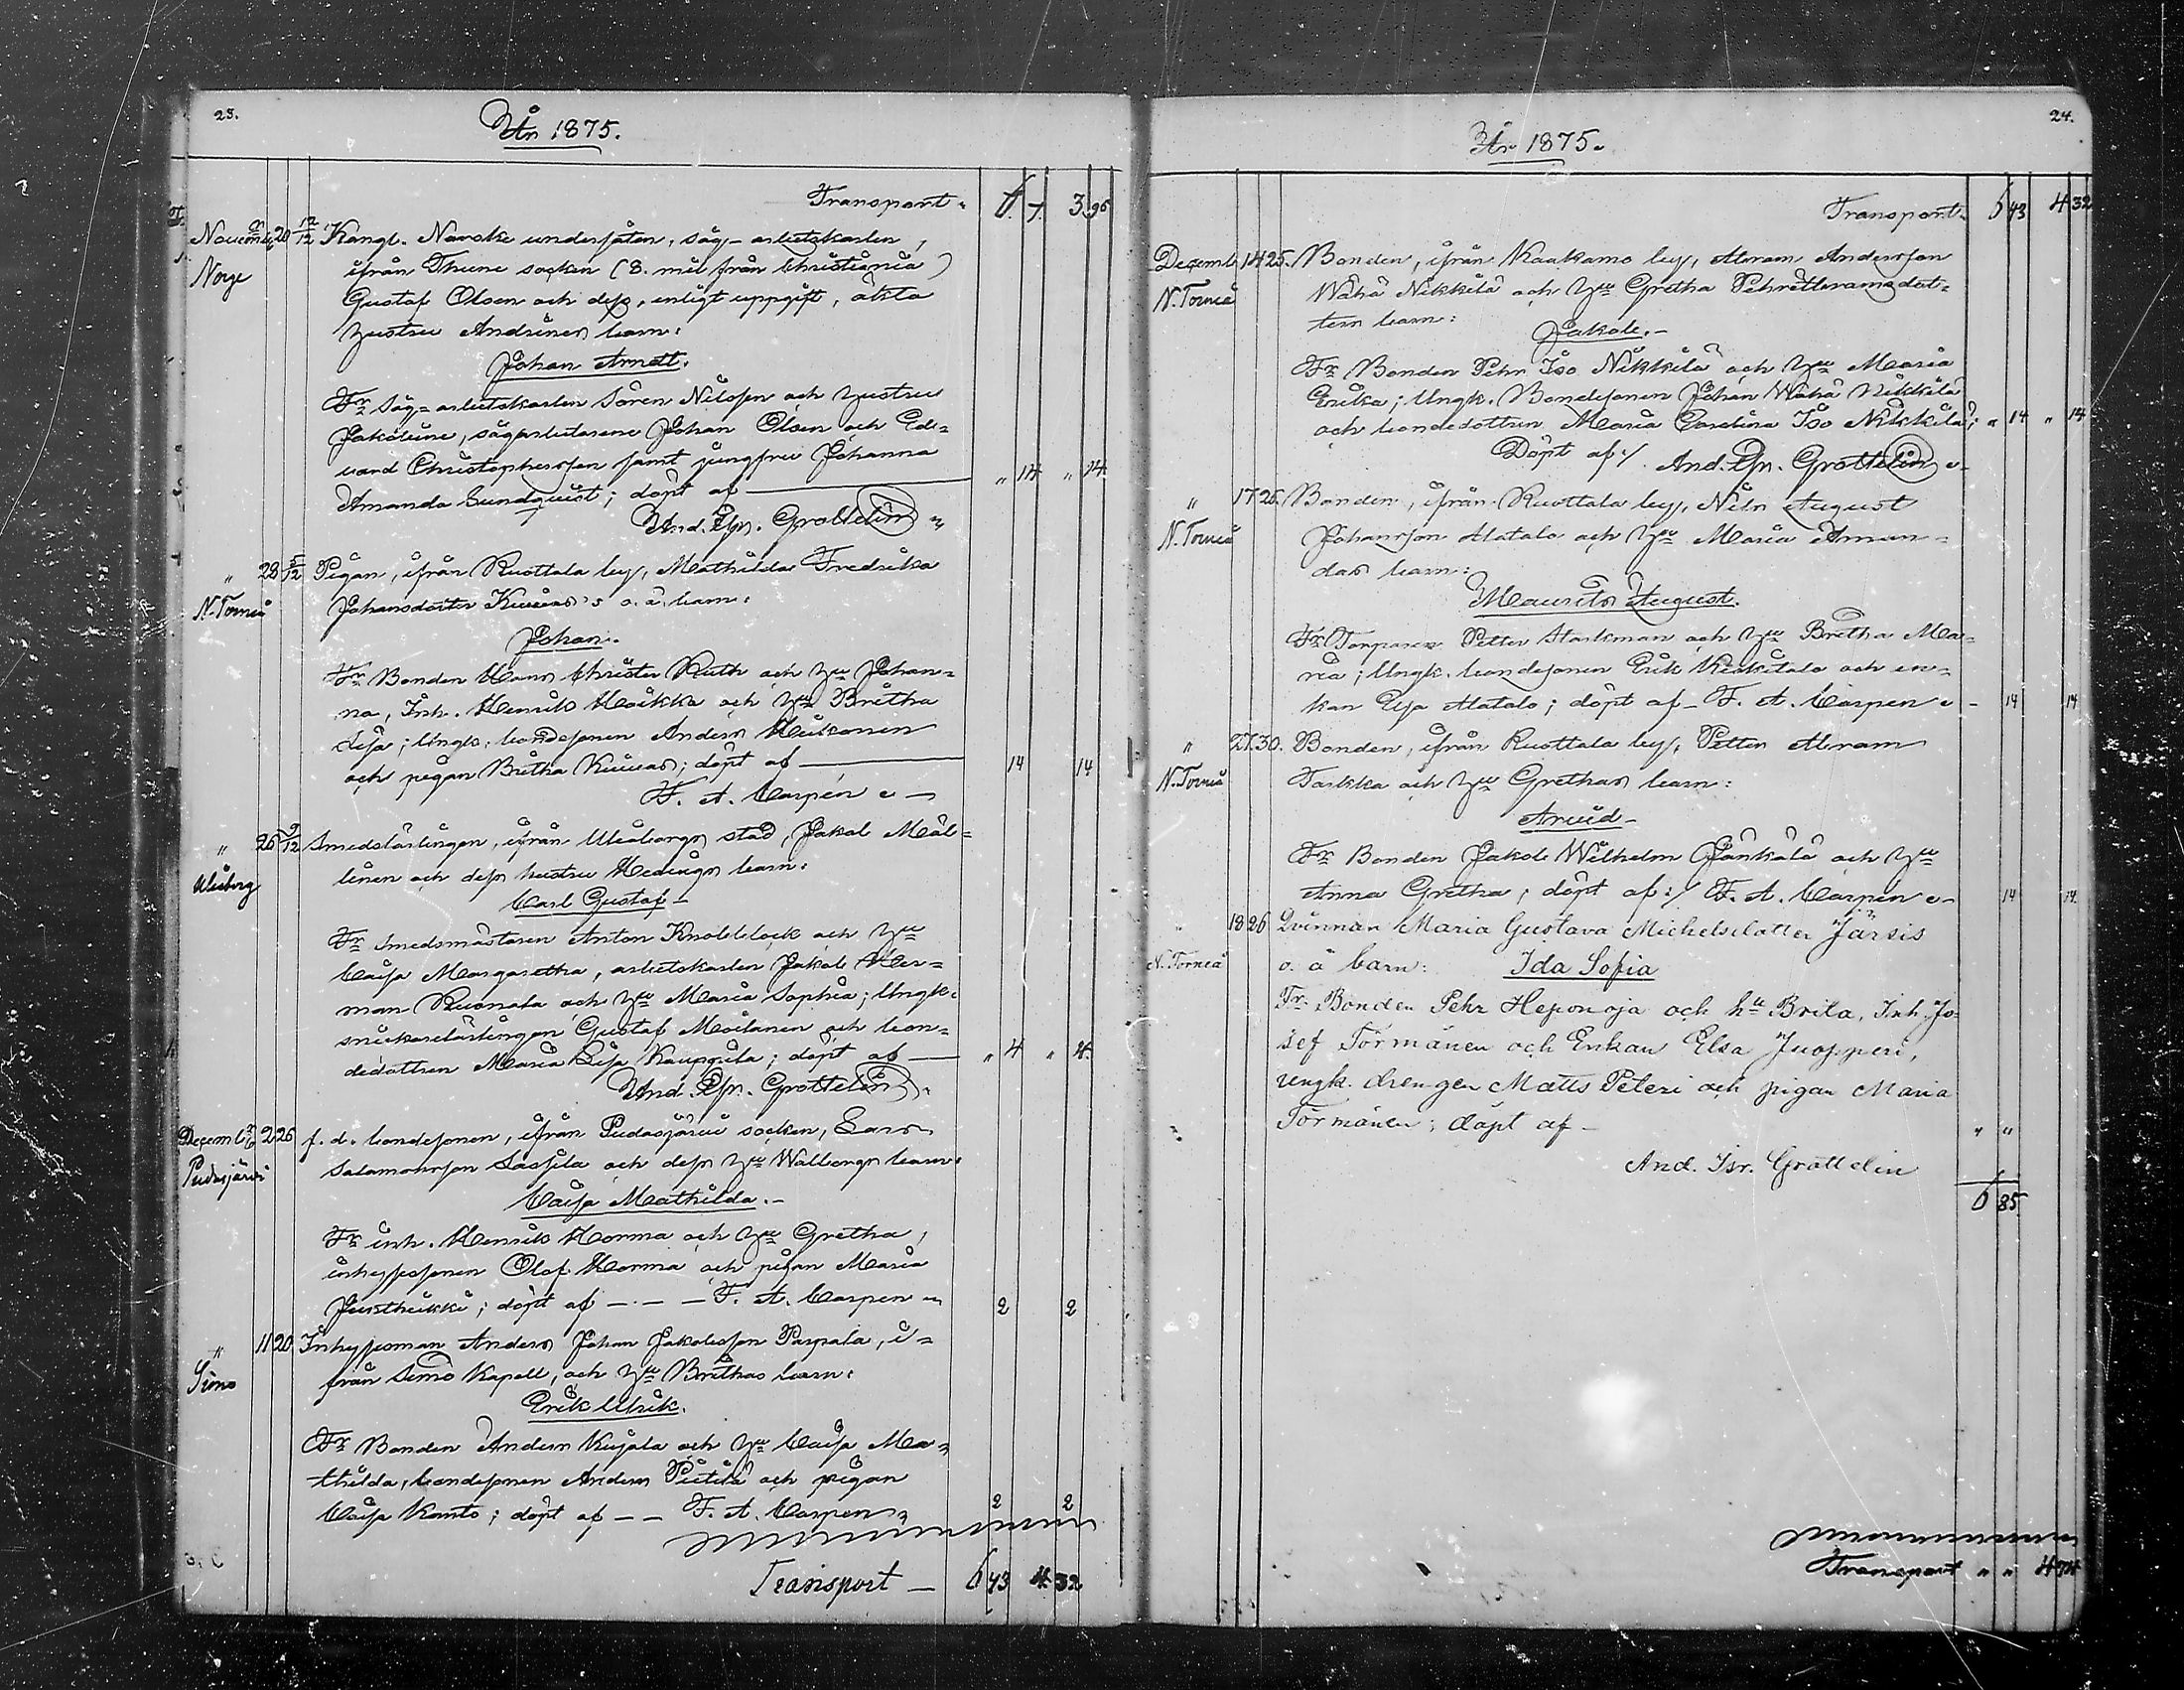 23.
År 1875.
Transport. 6. 7. 3 96
Novemb. 20 12/12 Kongl. Norske undersåten, såg-arbetskarlen,
Norge
ifrån Thune socken (8. mil från Christiania)
Gustaf Olsen och dess, enligt uppgift, äkta
hustru Andrines barn:
Johan Arndt.
Fr. Såg-arbetskarlen Sören Nilssen och hustru
Jakobine, sågarbetarene Johan Olsen och Ed-
vard Christophersen samt jungfru Johanna
Amanda Lundquist; döpt af — " 14 " 14.
And. Isr. Grottelin
" 28 5/12 Pigan, ifrån Ruottala by, Mathilda Fredrika
N. Torneå
Johansdotter Kuivas's o. ä. barn:
Johan.
Fr. Bonden Hans Christer Ruth och hu Johan-
na, Inh. Henrik Heikka och hu Britha
Lisa; Ungk. bondesonen Anders Heikonen
och pigan Britha Kuivas; döpt af — 14 14
F. A. Carpén
" 26 9/12 Smedslärlingen, ifrån Uleåborgs stad, Jakob Mäl-
Uleåborg
linen och dess hustru Hedvigs barn:
Carl Gustaf
Fr. Smedsmästaren Anton Knobblock och hu
Caisa Margaretha, arbetskarlen Jakob Her-
man Ruonala och hu Maria Sophia; Ungk.
snickarelärlingen Gustaf Moilanen och bon-
dedottren Maria Lisa Kauppila; döpt af — " 4 " 4.
And. Isr. Grottelin
Decemb. 2 26 f. d. bondesonen, ifrån Pudasjärvi socken, Lars
Pudasjärvi
Salamonsson Sassila och dess hu Walborgs barn:
Caisa Mathilda.-
Fr. inh. Henrik Horma och hu Gretha,
inhysesonen Olof Horma och pigan Maria
; döpt af — . — — F. A. Carpen 2 2
" 11 20 Inhysesman Anders Johan Jakobsson Paspala, i-
Simo
från Simo Kapell, och hu Brithas barn:
Erik Ulrik.
Fr. Bonden Anders Kujala och hu Caisa Ma-
thilda, bondesonen Anders Pietilä och pigan
Caisa Kanto; döpt af — — F. A. Carpen 2 2
Transport — 6 43 4. 32
24.
År 1875.
Transport. 6 43 4 32
Decemb. 14 25. Bonden, ifrån Kaakamo by, Abram Andersson
N. Torneå
Wähä Nikkilä och hu Gretha Pehr Abramsdot-
ters barn:
Jakob.-
Fr. Bonden Pehr Iso Nikkilä och hu Maria
Erika; Ungk. Bondesonen Johan Wähä Nikkilä
och bondedottren Maria Carolina Iso Nikkilä; " 14 " 14
Döpt af :/. And. Isr. Grottelin
" 17 26. Bonden, ifrån Ruottala by, Nils August
N. Torneå
Johansson Alatalo och hu Maria Aman-
das barn:
Maurits August.
Fr. Torparen Petter Starkman och hu Bretha Ma-
ria; Ungk. bondesonen Erik Keskitalo och en-
kan Elsa Alatalo; döpt af — F. A. Carpen 14 14
" 27. 30. Bonden, ifrån Ruottala by, Petter Abram
N. Torneå
Taskka och hu Grethas barn:
Arvid-
Fr. Bonden Jakob Wilhelm Jänkälä och hu
Anna Gretha; döpt af :/ F. A. Carpén 14 14
" 18 26 Qvinnan Maria Gustava Michelsdotter Järsis
N. Torneå
o. ä barn: Ida Sofia
Fr. Bonden Pehr Heponoja och hu Brita, Inh. Jo-
sef Törmänen och Enkan Elsa Juopperi,
ungk. drengen Matts Peteri och pigan Maria
Törmänen; döpt af - " "
And. Isr. Grottelin
6 85
Transport " " 4 74